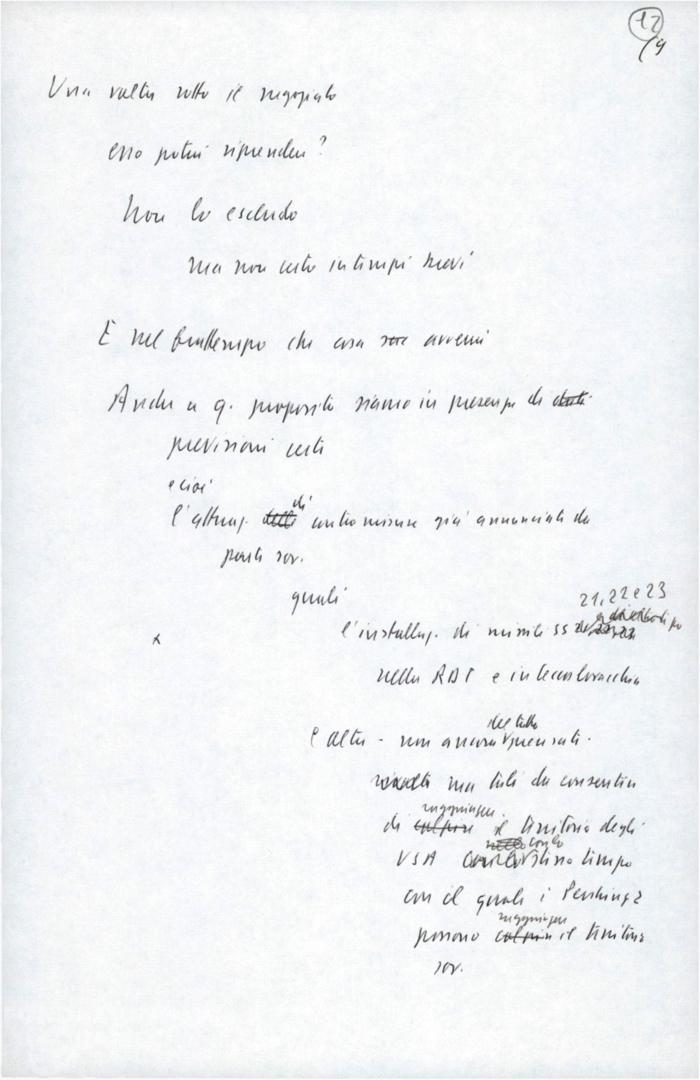 12
Una volta rotto il negoziato
esso potrà riprendere?
Non lo escludo
ma non certo in tempi brevi
E nel frattempo che cosa avverrà
Anche a q. proposito siamo in presenza di dati
previsioni certe
e cioè
l'attuaz. delle di contromisure già annunciate da
parte sov.
quali
21, 22 e 23
l'installaz. di missili SS
nella RDT e in Cecoslovacchia
del tutto
e altre - non ancora precisate -
ma tali da consentire
raggiungere
di colpire il territorio degli
USA stesso tempo
con il quale i Pershing 2
raggiungere
possono colpire il territorio
sov.